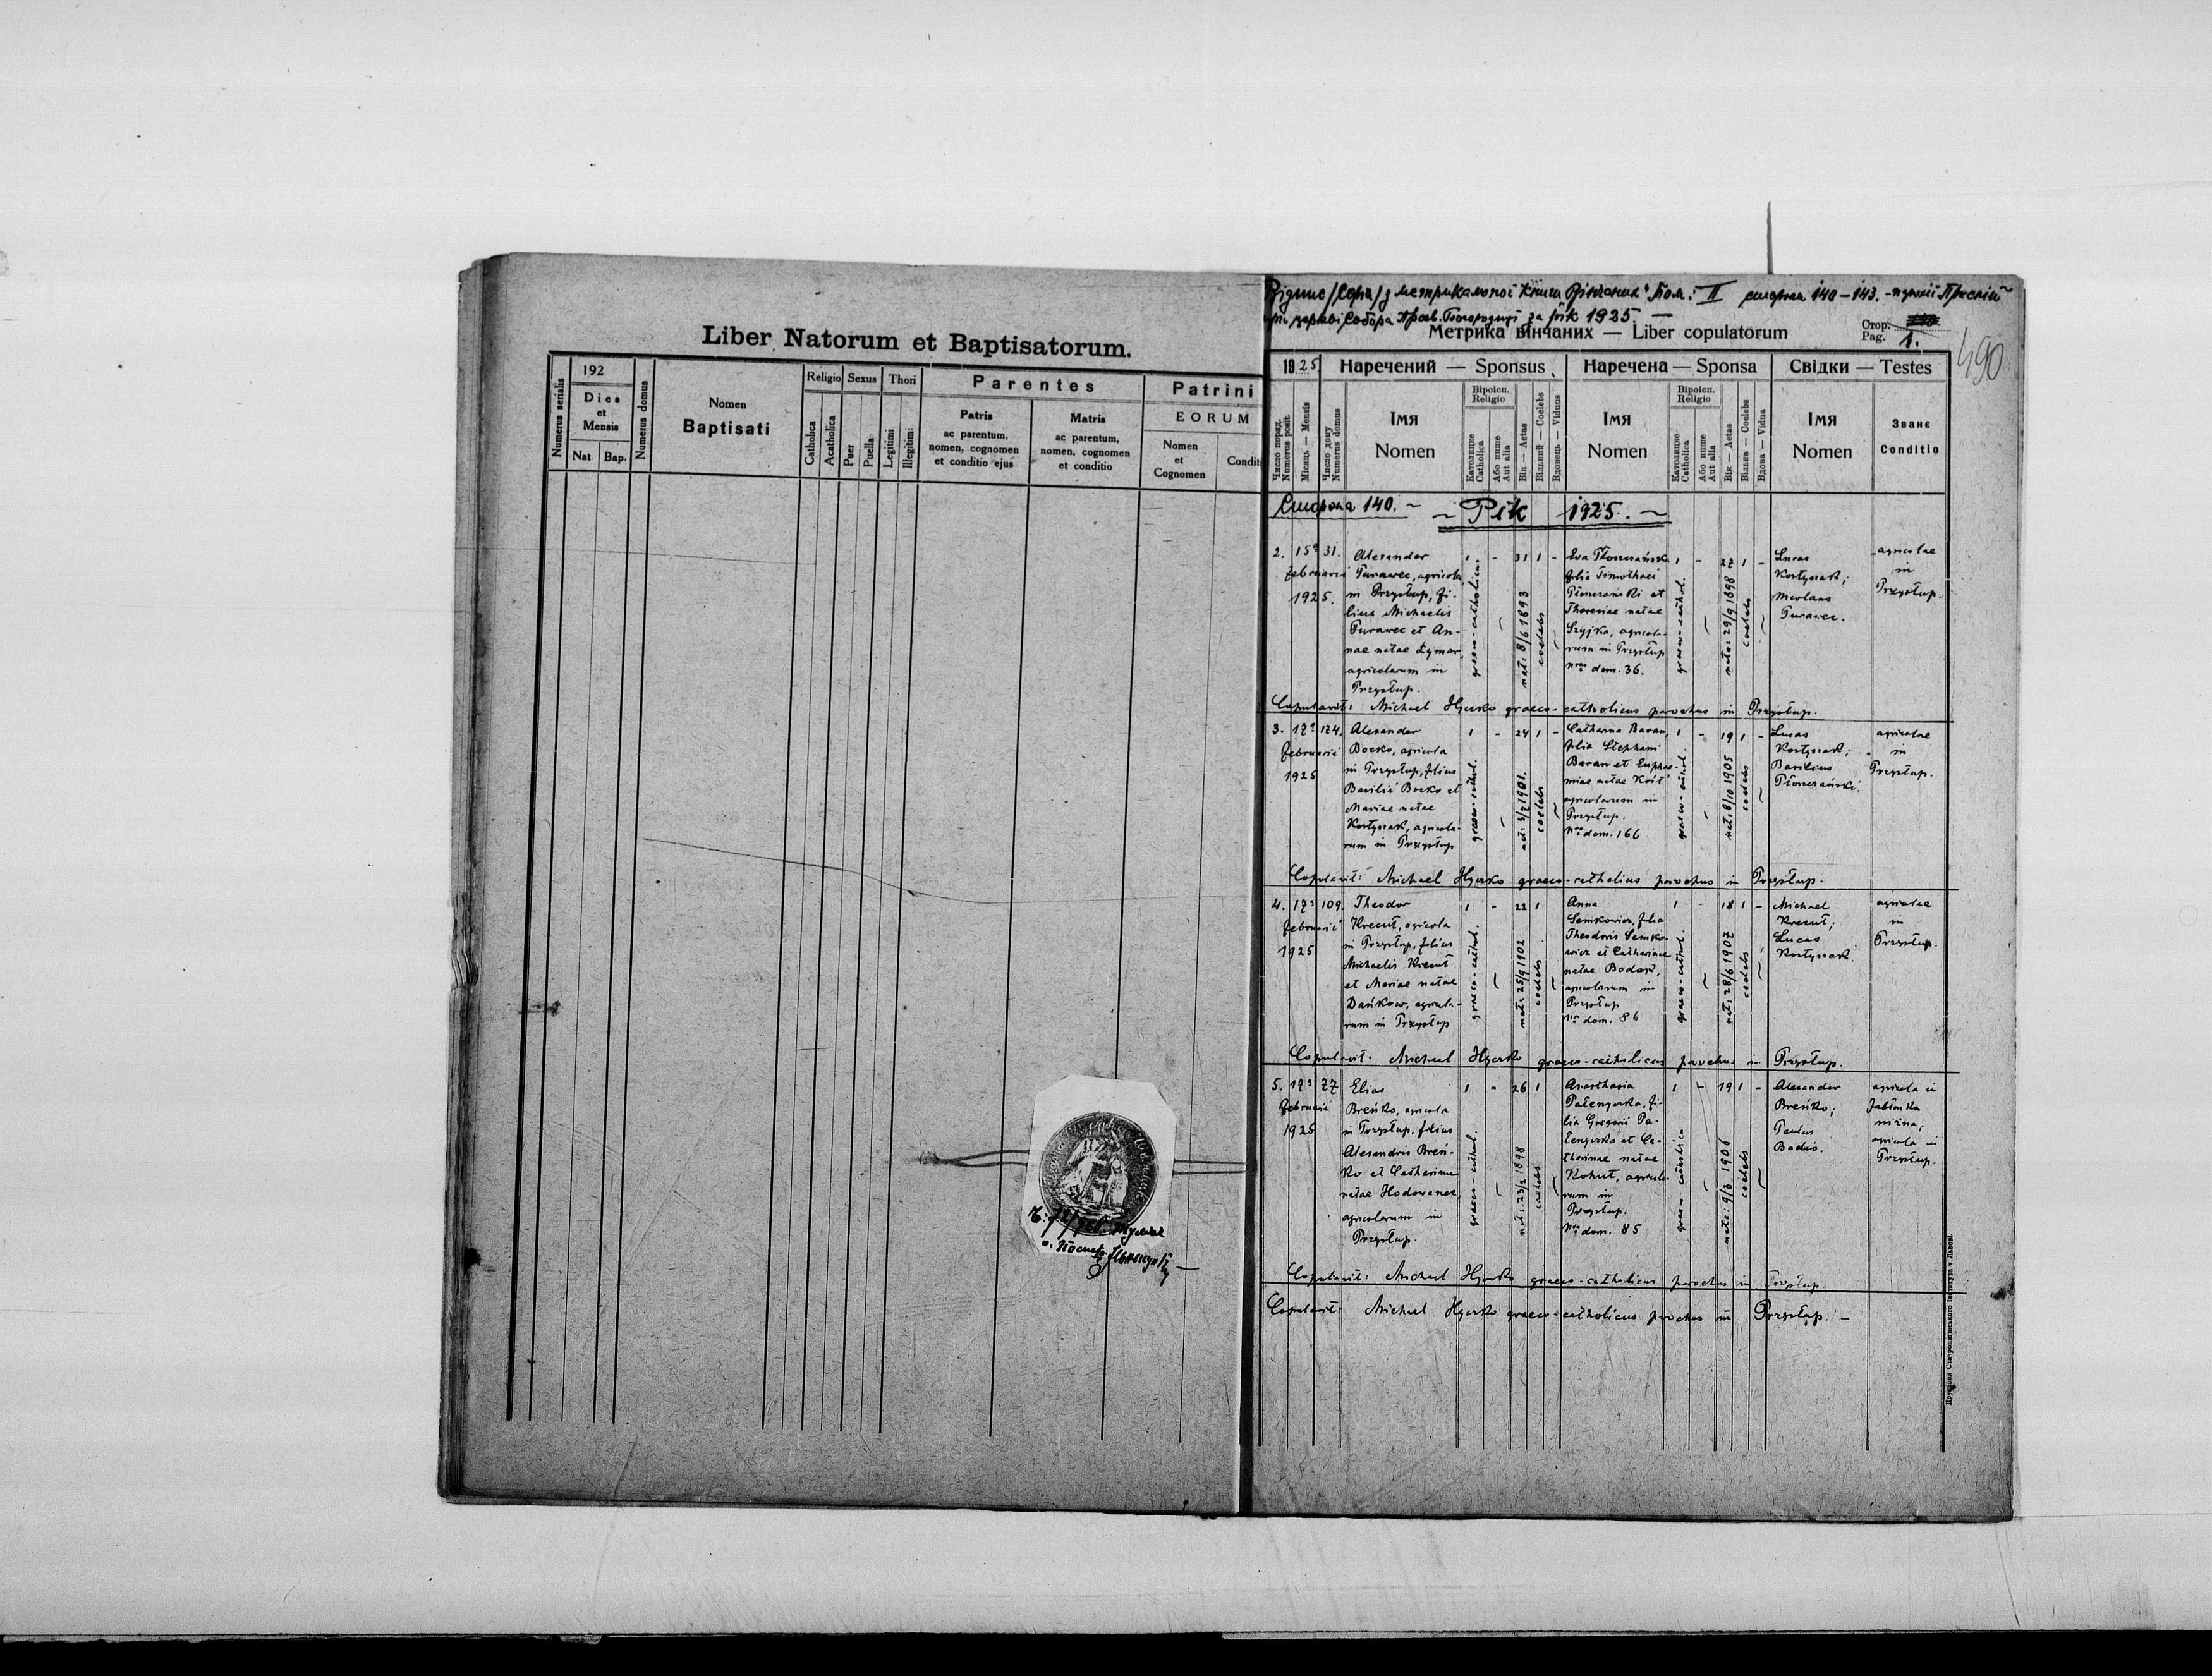 Liber Natorum et Baptisatorum.
Numerus serialis
192
Dies
et
Mensis
Nat.
Bap.
Numerus domus
Nomen
Baptisati
Religio
Catholica
Acatholica
Sexus
Puer
Puella
Thori
Legitimi
Illegitimi
Parentes
Patris
ac parentum,
nomen, cognomen
et conditio ejus
Matris
ac parentum,
nomen, cognomen
et conditio
Patrini
EORUM
Nomen
et
Cognomen
Conditi
II сторона 140–143.
за рік 1925. —
Метрика вінчаних — Liber copulatorum
Стор.
Pag. 1.
490
1925
Число поряд.
Numerus posit.
Місяць — Mensis
Число дому
Numerus domus
Наречений — Sponsus
Імя
Nomen
Віроісп.
Religio
Католицке
Catholica
Або инше
Aut alia
Вік — Aetas
Вільний — Coelebs
Вдовець — Viduus
Наречена — Sponsa
Імя
Nomen
Віроісп.
Religio
Католицке
Catholica
Або инше
Aut alia
Вік — Aetas
Вільна — Coelebs
Вдова — Vidua
Свідки — Testes
Імя
Nomen
Званє
Conditio
Сторона 140. ~
~ Рік 1925. ~
2. 15a 31.
februarii
1925.
Alexander
Turawec, agricola
in Przysłup, fi-
lius Michaelis
Turawec et An-
nae natae Łymar,
agricolarum in
Przysłup.
1 - 31 1 -
graeco-catholicus
nat: 8/6 1893
coelebs
Eva
filia Timothaei
et
Theresiae natae
Szyjka, agricola-
rum in Przysłup
Nro dom. 36.
1 - 1 -
graeco-cathol.
nata: 29/9 1898
coelebs
Lucas
Kostyszak;
Nicolaus
Turawec.
agricolae
in
Przysłup.
Copulavit: Michael Hycko graeco-catholicus parochus in Przysłup.
3. 17a 124.
februarii
1925
Alexander
Bocko, agricola
in Przysłup, filius
Basilii Bocko et
Mariae natae
Kostyszak, agricola-
rum in Przysłup
1 - 24 1 -
graeco-cathol.
1901.
coelebs
Catharina Baran,
filia Stephani
Baran et Euphe-
miae natae Kość
agricolarum in
Przysłup.
Nro dom. 166
1 - 19 1 -
graeco-cathol.
nat: 8/10 1905
coelebs
Lucas
Kostyszak;
Basilius
agricolae
in
Przysłup.
Copulavit: Michael Hycko graeco-catholicus parochus in Przysłup.
4. 17a 109.
februarii
1925
Theodor
Krecut, agricola
in Przysłup, filius
Michaelis Krecut
et Mariae natae
Dańkow, agricola-
rum in Przysłup
1 - 22 1
graeco-cathol.
nat: 25/9 1902
coelebs
Anna
Semkowicz, filia
Theodoris Semko-
wicz et Catharinae
natae Bodak,
agricolarum in
Przysłup
Nro dom. 86
1 - 18 1 -
graeco-cathol.
nat: 28/6 1907
coelebs
Michael
Krecut;
Lucas
Kostyszak.
agricolae
in
Przysłup.
Copulavit: Michael Hycko graeco-catholicus parochus in Przysłup.
5. 17a 77
februarii
1925
Elias
Breńko, agricola
in Przysłup, filius
Alexandris Breń-
ko et Catharinae
natae Hodowanec,
agricolarum in
Przysłup.
1 - 26 1
graeco-cathol.
nat: 23/2 1898
coelebs
Anasthasia
fi-
lia Gregorii Pa-
et Ca-
tharinae natae
Kohut, agricola-
rum in
Przysłup.
Nro dom. 85
1 - 19 1 -
graeco-catholica
nata: 9/3 1906
coelebs
Alexander
Breńko;
Paulus
Badio.
agricola in
Jabłonka
niżna;
agricola in
Przysłup.
Copulavit: Michael Hycko graeco-catholicus parochus in Przysłup.
Copulavit: Michael Hycko graeco-catholicus parochus in Przysłup. —
Друкарня Ставропигійського Інститута у Львові.